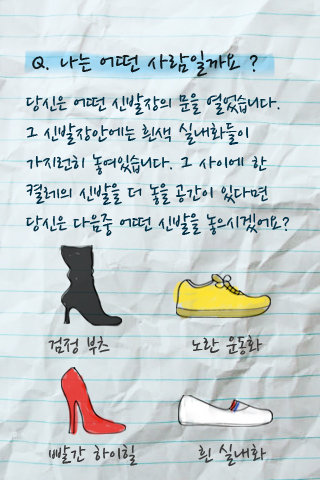 Q. 나는 어떤 사람일까요 ?
당신은 어떤 신발장의 문을 열었습니다.
그 신발장안에는 흰색 실내화들이
가지런히 놓여있습니다. 그 사이에 한
켤레의 신발을 더 놓을 공간이 있다면
당신은 다음중 어떤 신발을 놓으시겠어요?
검정 부츠
노란 운동화
빨간 하이힐
흰 실내화